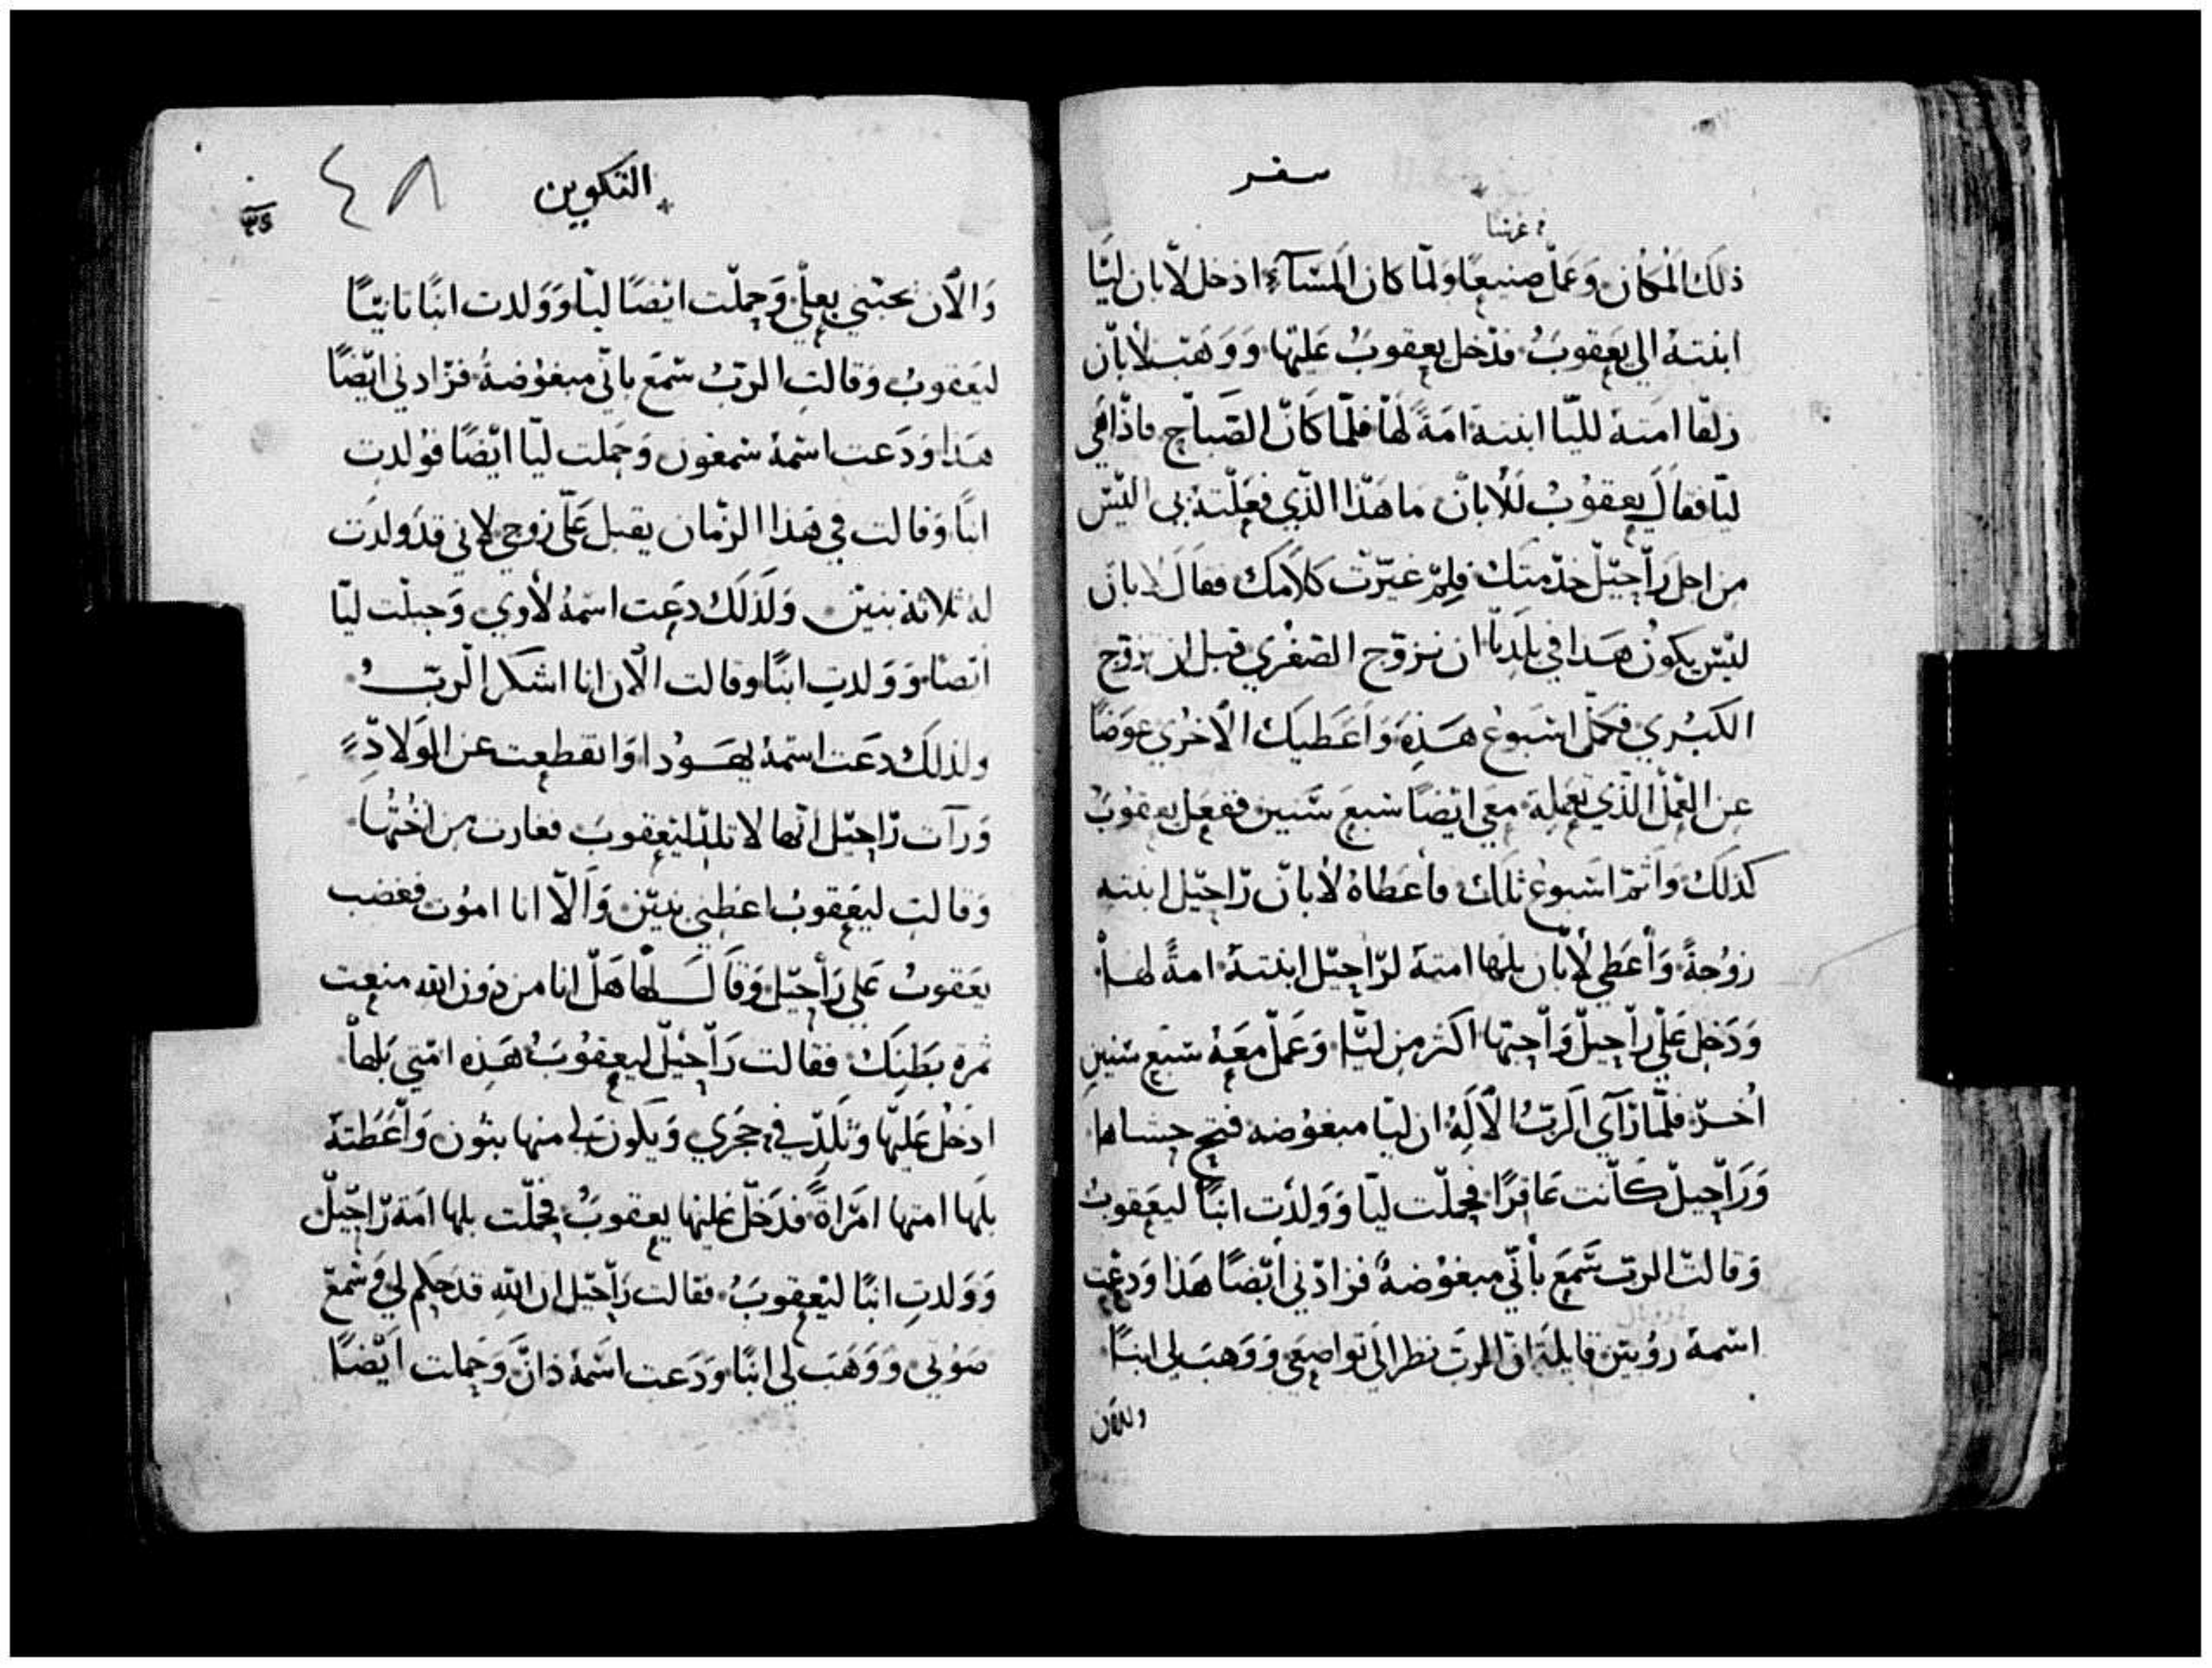 سفر
عرسا
ذلك المكان وعمل صنيعًا ولما كان المسآء ادخل لابان ليّا
ابنتهُ الي يعقوبُ فدخل يعقوبُ عليها ووهب لابان
زلفا امته لليّا ابنته امةً لها فلما كان الصباح فاذا هي
ليّا فقال يعقوبُ للابان ما هذا الذي فعلته بي اليس
من اجل راحيل خدمتك فلم غيرت كلامك فقال لابان
ليس يكون هذا في بلدنا ان نزوج الصغري قبل ان نزوج
الكبري فكمل اسبوع هذه واعطيك الاخري عوضًا
عن العمل الذي تعمله معي ايضًا سبع سنين ففعل يعقوبُ
كذلك واتم اسبوع تلك فأعطاهُ لابان راحيل ابنته
زوجةً واعطي لابان بلها امتهُ لراحيل ابنتهُ امةً لها
ودخل علي راحيل واحبها اكثر من ليّا وعمل معهُ سبع سنين
اُخر فلما رآي الربُ الالهُ ان ليّا مبغوضه فتح حشاها
وراحيل كانت عاقرًا فحملت ليّا وولدت ابنًا ليعقوبُ
وقالت الرب سمع بأني مبغوضهُ فزادني ايضًا هذا ودعت
اسمهُ روبين قايلة ان الرب نظر الي تواضعي ووهب لي ابنًا
والان
التكوين
٤٨
والآن يحبني بعلي وحملت ايضًا ليّا وولدت ابنًا ثانيًا
ليعقوبُ وقالت الربُ سمع باني مبغوضةُ فزادني ايضًا
هذا ودعت اسمهُ شمعون وحملت ليّا ايضًا فولدت
ابنًا وقالت في هذا الزمان يقبل عليّ زوجي لاني قد ولدت
لهُ ثلاثة بنين ولذلك دعت اسمهُ لاوي وحبلت ليّا
ايضًا وولدت ابنًا وقالت الآن انا اشكر الربُ
ولذلك دعت اسمهُ يهودا وانقطعت عن الولادةِ
ورآت راحيل انها لا تلد ليعقوبَ فغارت من اختها
وقالت ليعقوبُ اعطني بنين والّا انا اموت فغضب
يعقوبُ علي راحيل وقال لها هل انا من دون الله منعت
ثمرة بطنك فقالت راحيل ليعقوبُ هذه امتي بلها
ادخل عليها وتلد في حجري ويكون لي منها بنون واعطتهُ
بلها امتها امراةً فدخل عليها يعقوبُ فحملت بلها امة راحيل
وولدت ابنًا ليعقوبُ فقالت راحيل ان الله قد حكم لي وسمع
صوتي ووهب لي ابنًا ودعت اسمهُ دان وحملت ايضًا